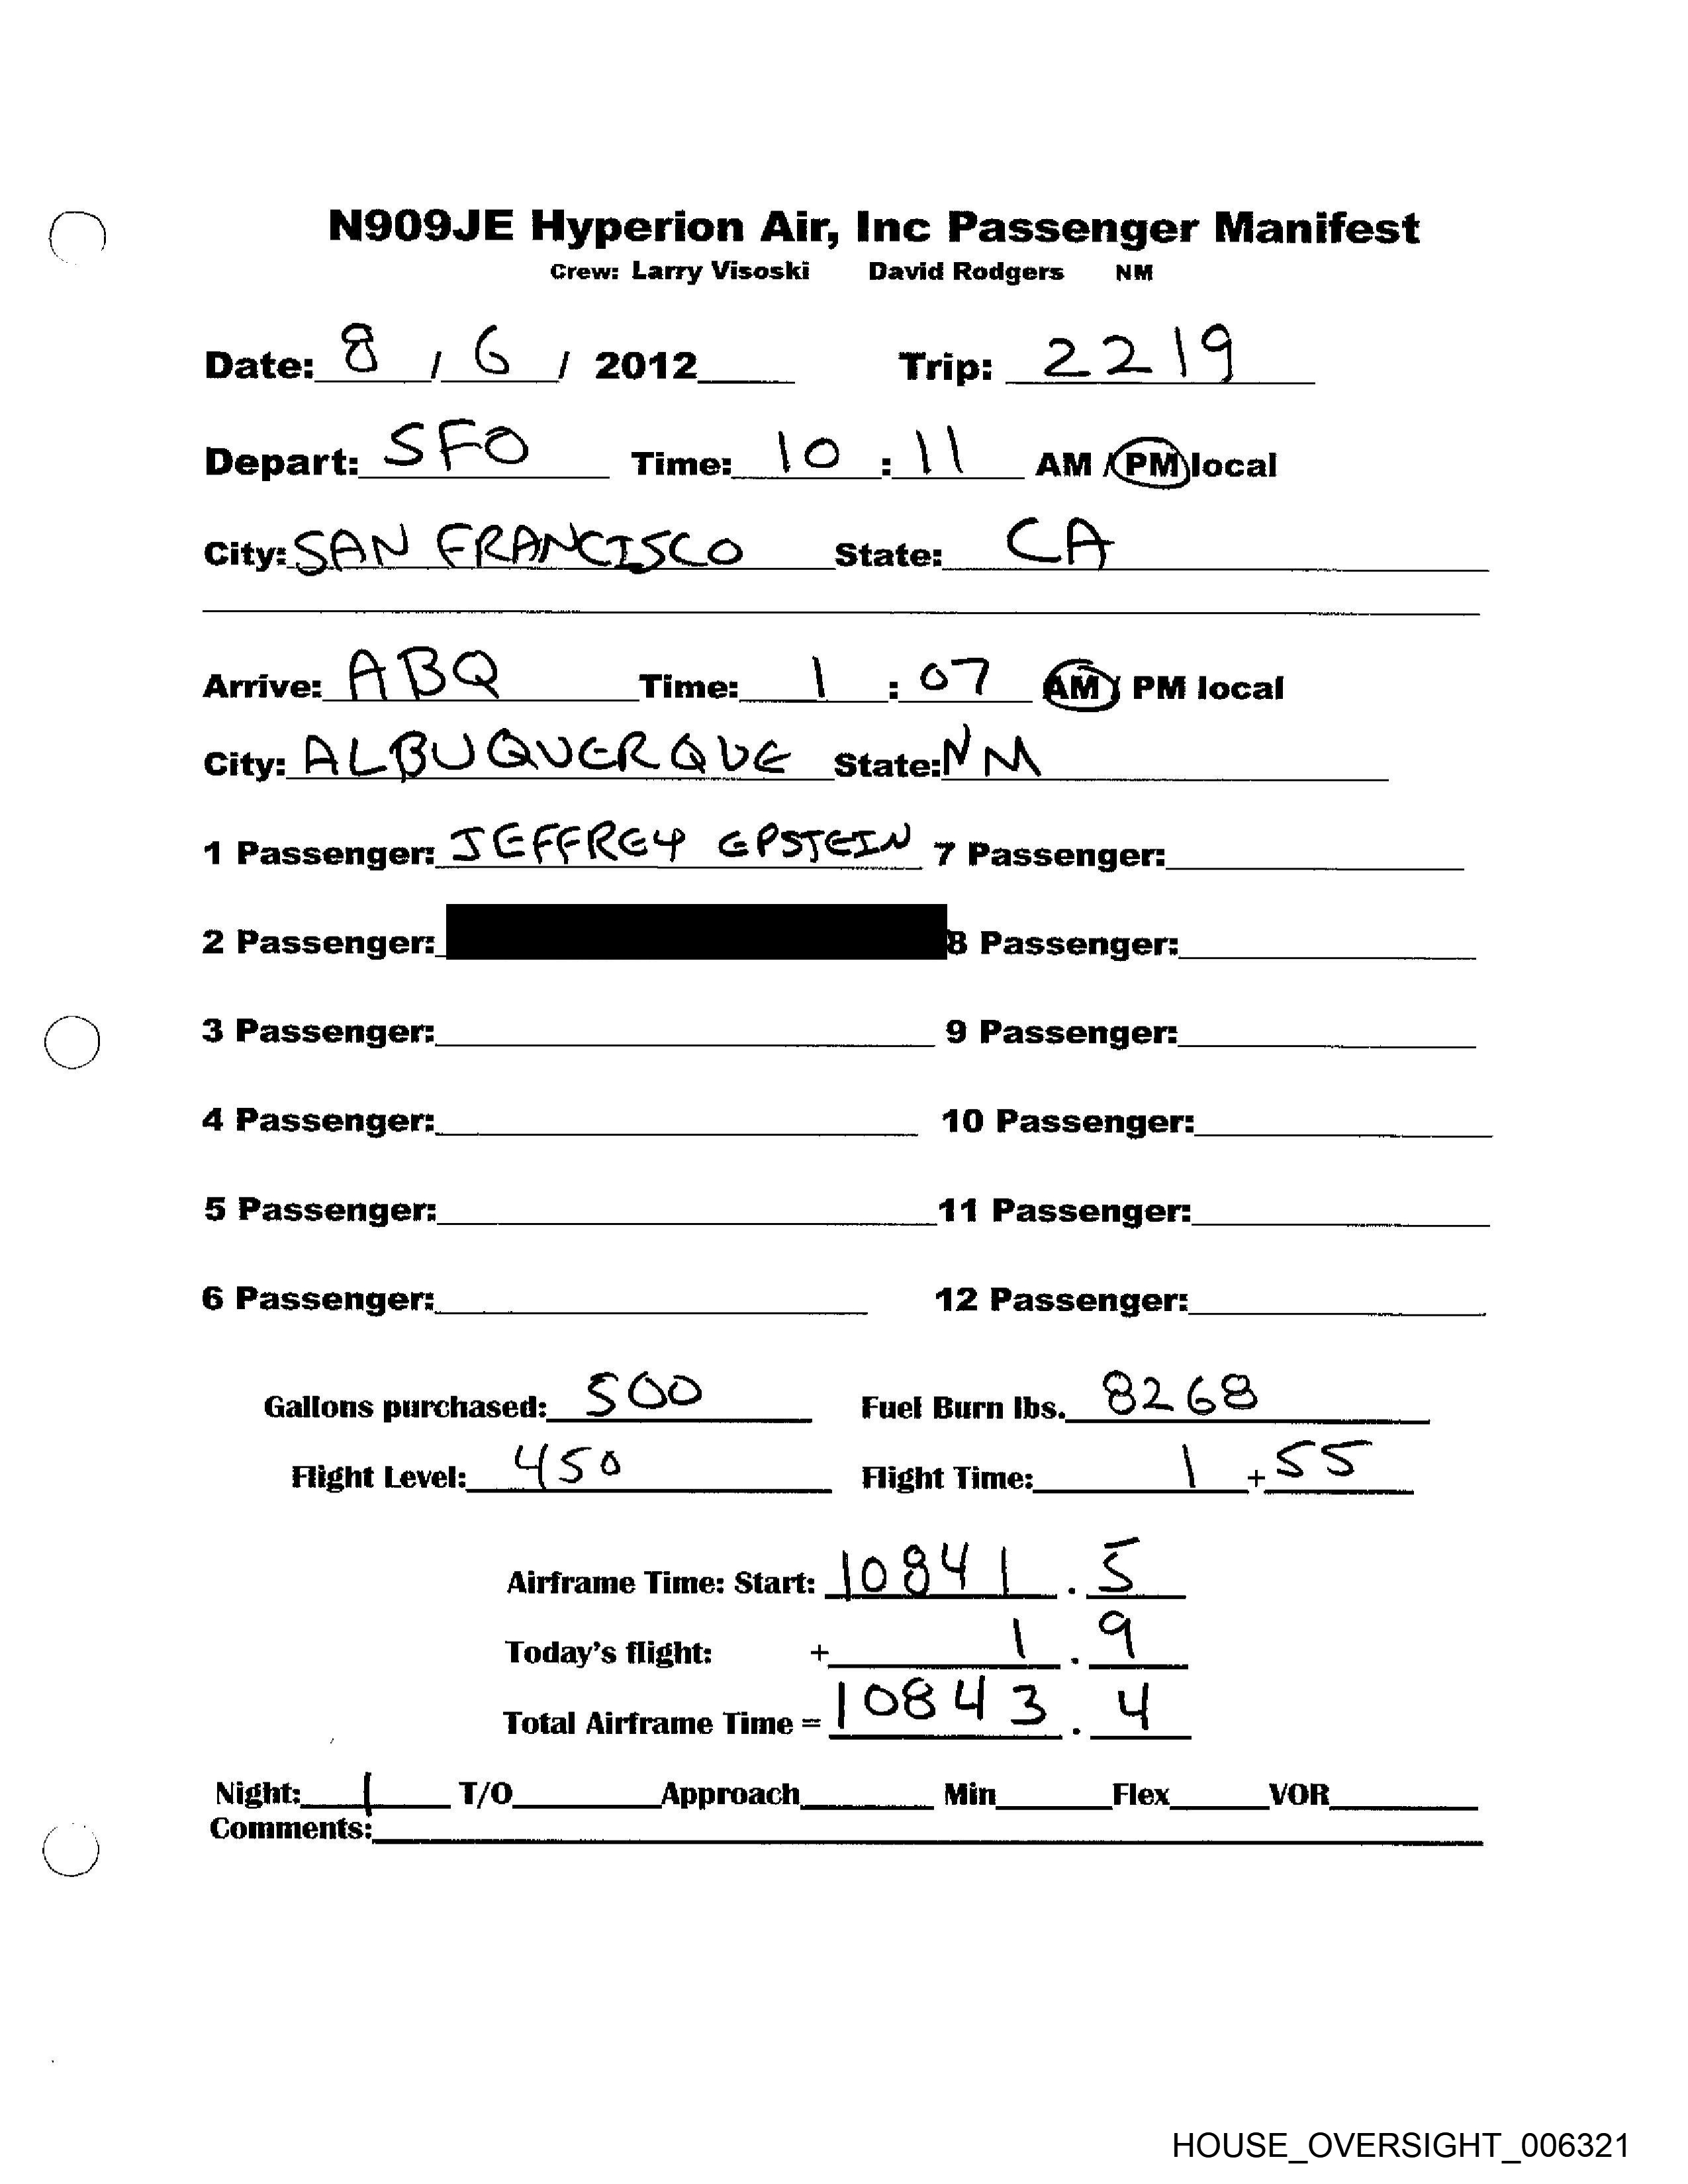 N909JE Hyperion Air, Inc Passenger Manifest
Crew: Larry Visoski David Rodgers NM
Date: 8 / 6 / 2012 Trip: 2219
Depart: SFO Time: 10 : 11 AM / PM local
City: SAN FRANCISCO State: CA
Arrive: ABQ Time: 1 : 07 AM / PM local
City: ALBUQUERQUE State: NM
1 Passenger: JEFFREY EPSTEIN 7 Passenger:
2 Passenger: 8 Passenger:
3 Passenger: 9 Passenger:
4 Passenger: 10 Passenger:
5 Passenger: 11 Passenger:
6 Passenger: 12 Passenger:
Gallons purchased: 500 Fuel Burn lbs. 8268
Flight Level: 450 Flight Time: 1 + 55
Airframe Time: Start: 10841 . 5
Today's flight: + 1 . 9
Total Airframe Time = 10843 . 4
Night: 1 T/O Approach Min Flex VOR
Comments:
HOUSE_OVERSIGHT_006321